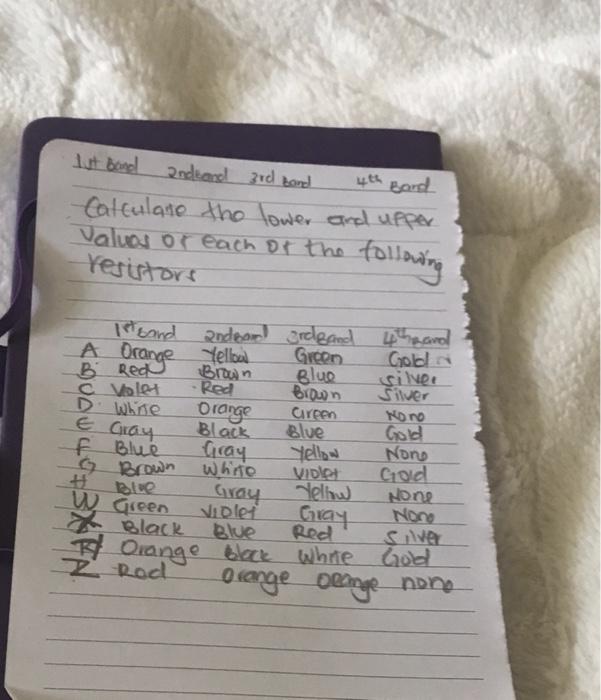 1st Band 2ndBand 3rd Band 4th Band
Calculate the lower and upper
values of each of the following
resistors
1st Band 2ndBand 3rdBand 4thBand
A Orange Yellow Green Gold
B Red Brown Blue Silver
C Volet Red Brown Silver
D. White Orange Green None
E Gray Black Blue Gold
F Blue Gray Yellow None
G Brown White Violet Gold
H Blue Gray Yellow None
W Green Violet Gray None
X Black Blue Red Silver
Orange Black White Gold
Z Red Orange Orange none